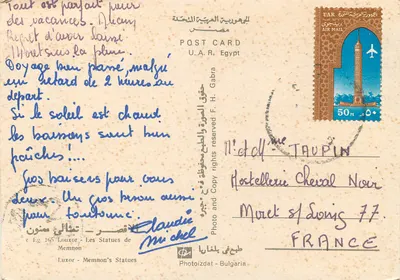 Tout est parfait pour
des vacances.
Regret d'avoir laissé
Voyage bien passé, malgré
un retard de 2 heures au
départ.
Si le soleil est chaud
les boissons sont bien
fraîches!...
Gros baisers pour vous
deux. Un gros bisou aussi
pour
Claudie
Michel
الجمهورية العربية المتحدة
مصر
POST CARD
U. A. R. Egypt
حقوق الصورة والطبع محفوظة
Photo and Copy rights reserved F. H. Gabra
UAR
AIR MAIL
50 M
٥٠
Mr et Mme TAUPIN
Hostellerie Cheval Noir
Moret s/Loing 77.
FRANCE
الأقصر - تمثالي ممنون
Luxor - Les Statues de
Memnon
Luxor - Memnon's Statues
طبع في بلغاريا
Photo/zdat - Bulgaria